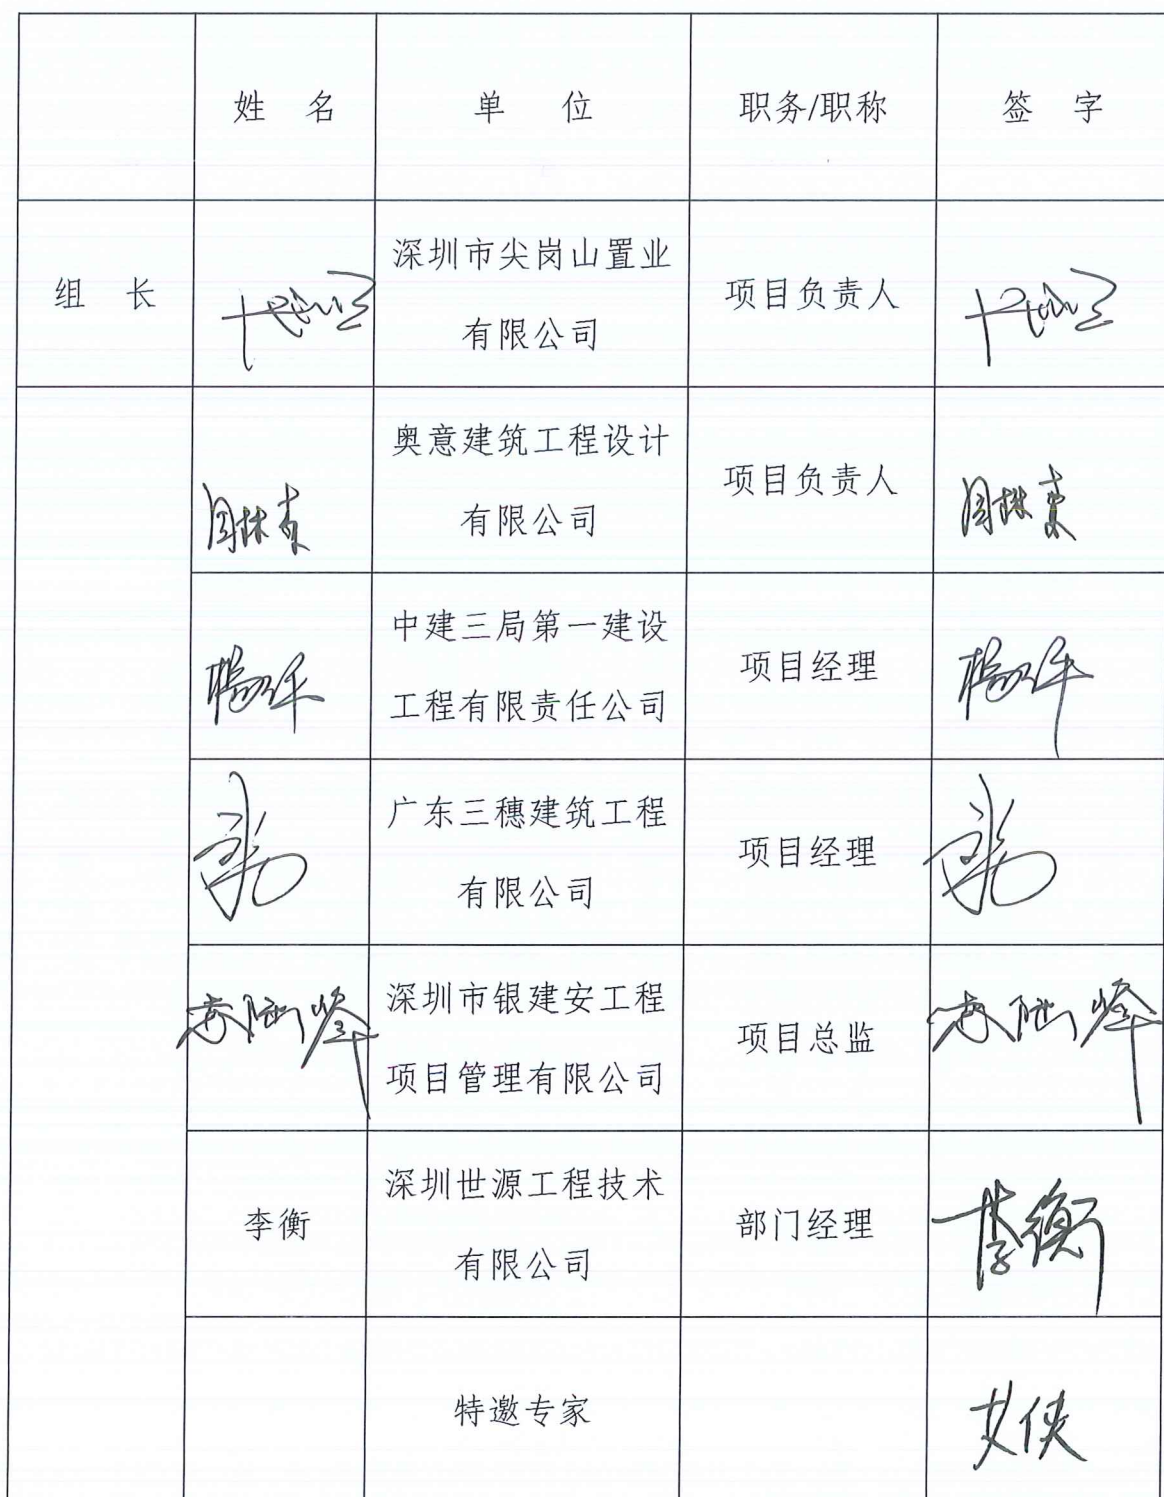 姓 名 单 位 职务/职称 签 字
组 长
深圳市尖岗山置业
有限公司
项目负责人
奥意建筑工程设计
有限公司
项目负责人
中建三局第一建设
工程有限责任公司
项目经理
广东三穗建筑工程
有限公司
项目经理
深圳市银建安工程
项目管理有限公司
项目总监
李衡
深圳世源工程技术
有限公司
部门经理
李衡
特邀专家